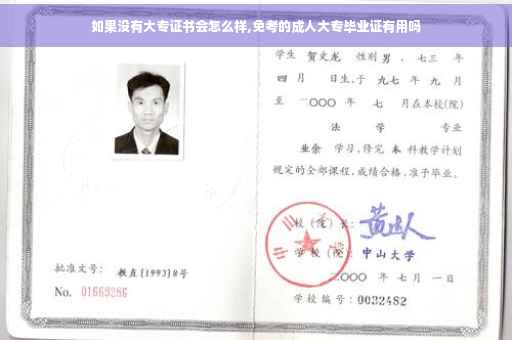 如果没有大专证书会怎么样,免考的成人大专毕业证有用吗
学生 贺文龙 性别 男 、七三 年
四 月 日生,于 九七 年 九 月
至 二〇〇〇 年 七 月在本校(院)
法 学 专业
业余 学习,修完 本 科教学计划
规定的全部课程,成绩合格,准予毕业。
校(院)长:
学校(院): 中山大学
二〇〇〇 年 七 月 一 日
批准文号: 教直[1993]8号
No. 01669286
学校编号: 0032482